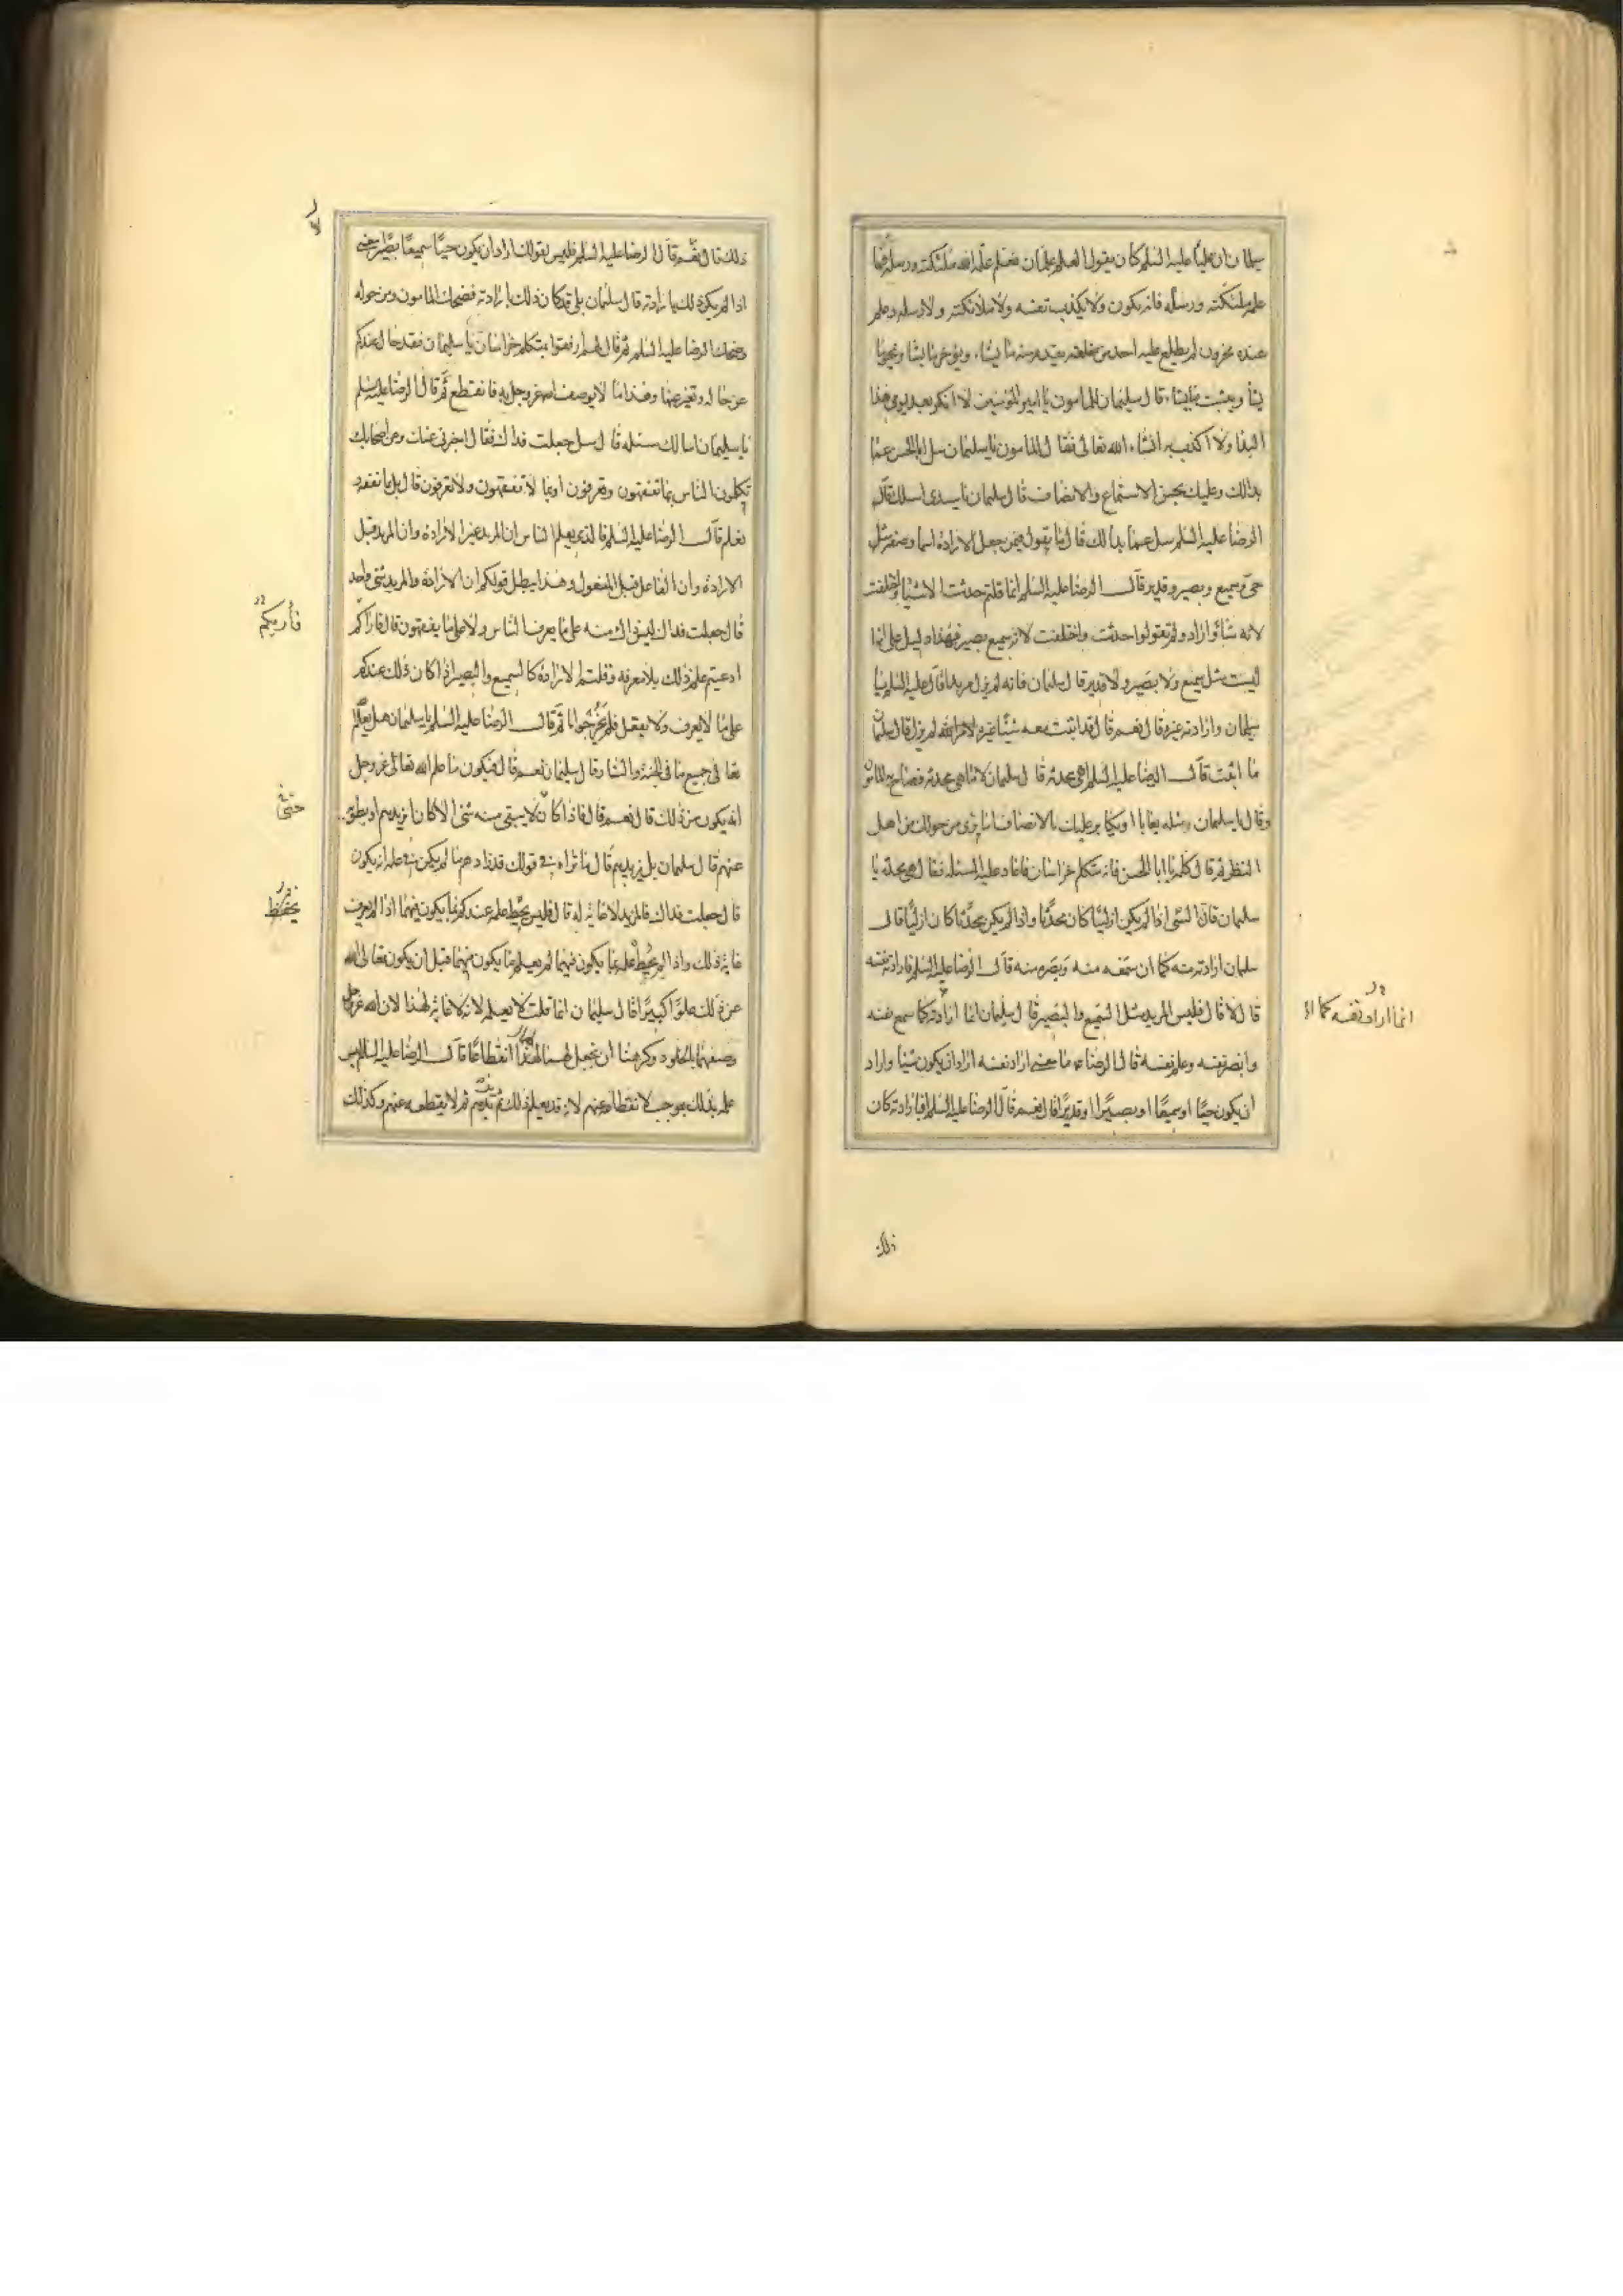 سليمان ان عليا عليه السلم كان يقول العلم علمان فعلم علمه الله ملئكته ورسله فما
علمه ملئكته ورسله فانه يكون ولا يكذب نفسه ولا ملائكته ولا رسله وعلم
عنده مخزون لم يطلع عليه احد من خلقه يقدم منه ما يشاء ويؤخر ما يشا ويمحو ما
يشا ويثبت ما يشاء قال سليمان للمامون يا امير المؤمنين لا انكر بعد يومى هذا
البدا ولا اكذب به انشاء الله تعالى فقال المامون يا سليمان سل ابا الحسن عما
بدالك وعليك بحسن الاستماع والانصاف قال سليمان يا سيدى اسلك قال
الرضا عليه السلم سل عما بدا لك قال ما يقول فيمن جعل الارادة اسما وصفة مثل
حى وسميع وبصير وقدير قال الرضا عليه السلم انما قلتم حدثت الاشيا واختلفت
لانه شاء واراد ولم تقولوا حدثت واختلفت لانه سميع بصير فهذا دليل على انها
ليست مثل سميع ولا بصير ولا قدير قال سليمان فانه لم يزل مريدا قال عليه السلم يا
سليمان وارادته غيره قال نعم قال قد اثبت معه شيئا غيره لم يزل قال سليمان
ما اثبت قال الرضا عليه السلم اهى محدثة قال سليمان لا ما هى محدثة فصاح به المامون
وقال يا سليمان مثله يعايا او يكابر عليك بالانصاف اما ترى من حولك من اهل
النظر ثم قال كلمه يا ابا الحسن فانه متكلم خراسان فاعاد عليه المسئله فقال هى محدثة يا
سليمان فان الشى اذا لم يكن ازليا كان محدثا واذا لم يكن محدثا كان ازليا قال
سليمان ارادته منه كما ان سمعه منه وبصره منه قال الرضا عليه السلم فارادته نفسه
قال لا قال فليس المريد مثل السميع والبصير قال سليمان انما ارادته كما سمع نفسه
انما اراد نفسه كما
وابصر نفسه وعلم نفسه قال الرضا ما معنى اراد نفسه اراد ان يكون شيئا واراد
ان يكون حيا او سميعا او بصيرا او قديرا قال نعم قال الرضا عليه السلم افبارادته كان
ذلك
ذلك قال نعم قال الرضا عليه السلم فليس لقولك اراد ان يكون حيا سميعا بصيرا معنى
لا
اذا لم يكن ذلك بارادته قال سليمان بلى قد كان ذلك بارادته فضحك المامون ومن حوله
وضحك الرضا عليه السلم ثم قال لهم ارفقوا بمتكلم خراسان يا سليمان فقد حال عندكم
عن حاله وتغير عنها وهذا ما لا يوصف الله عز وجل به فانقطع ثم قال الرضا عليه السلم
يا سليمان اسالك مسئله قال سل جعلت فداك فقال اخبرنى عنك وعن اصحابك
تكلمون الناس بما تفقهون وتعرفون او بما لا تفقهون ولا تعرفون قال بل بما نفقه
نعلم قال الرضا عليه السلم فالذى يعلم الناس ان المريد غير الارادة وان المريد قبل
الارادة وان الفاعل قبل المفعول وهذا يبطل قولكم ان الارادة والمريد شى واحد
قال جعلت فداك ليس ذاك منه على ما يعرف الناس ولا على ما يفقهون قال فاراكم
فأريكم
ادعيتم علم ذلك بلا معرفه وقلتم الارادة كالسميع والبصير اذا كان ذلك عندكم
على ما لا يعرف ولا يعقل فلم يحر جوابا ثم قال الرضا عليه السلم يا سليمان هل يعلم
تعالى جميع ما فى الجنة والنار قال سليمان نعم قال فيكون ما علم الله تعالى عز وجل
انه يكون من ذلك قال نعم قال فاذا كان لا يبقى منه شى الا كان ايزيدهم او يطوى
حتى
عنهم قال سليمان بل يزيدهم قال ما اراه فى قولك قد زادهم ما لم يكن فى علمه انه يكون
قال جعلت فداك فالمزيد لا غاية له قال فليس يحيط علمه عندكم بما يكون فيهما اذا لم يعرف
غاية ذلك واذا لم يحيط علمه بما يكون فيهما لم يعلم ما يكون منهما قبل ان يكون تعالى الله
عن ذلك علوا كبيرا قال سليمان انما قلت لا يعلمه لانه لا غاية لهذا لان الله عز وجل
وصفهما بالخلود وكرهنا ان نجعل لهما انقطاعا قال الرضا عليه السلم ليس
علمه بذلك بموجب لانقطاعه عنهم لانه قد يعلم ذلك ثم يزيدهم ثم لا يقطعه عنهم وكذلك